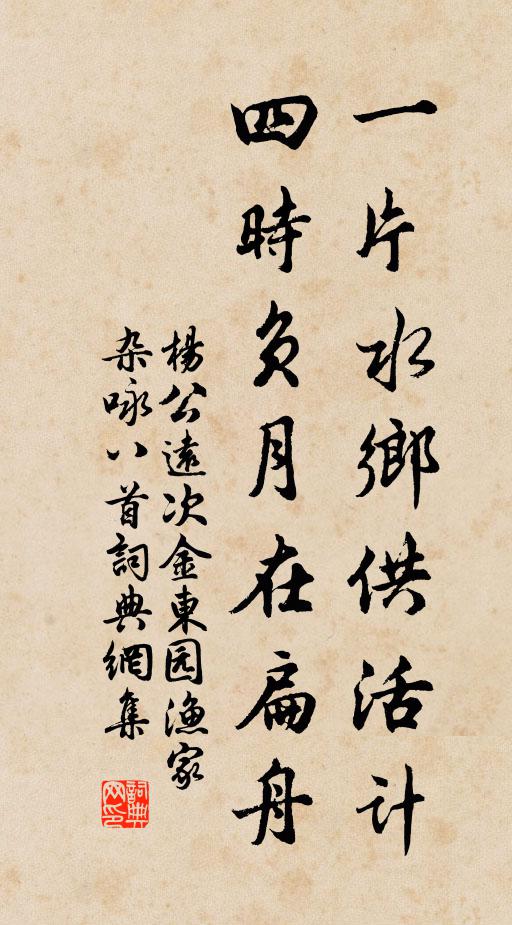 一片水鄉供活計
四時負月在扁舟
楊公遠次金東园漁家
杂咏八首詞典網集
詞典网印